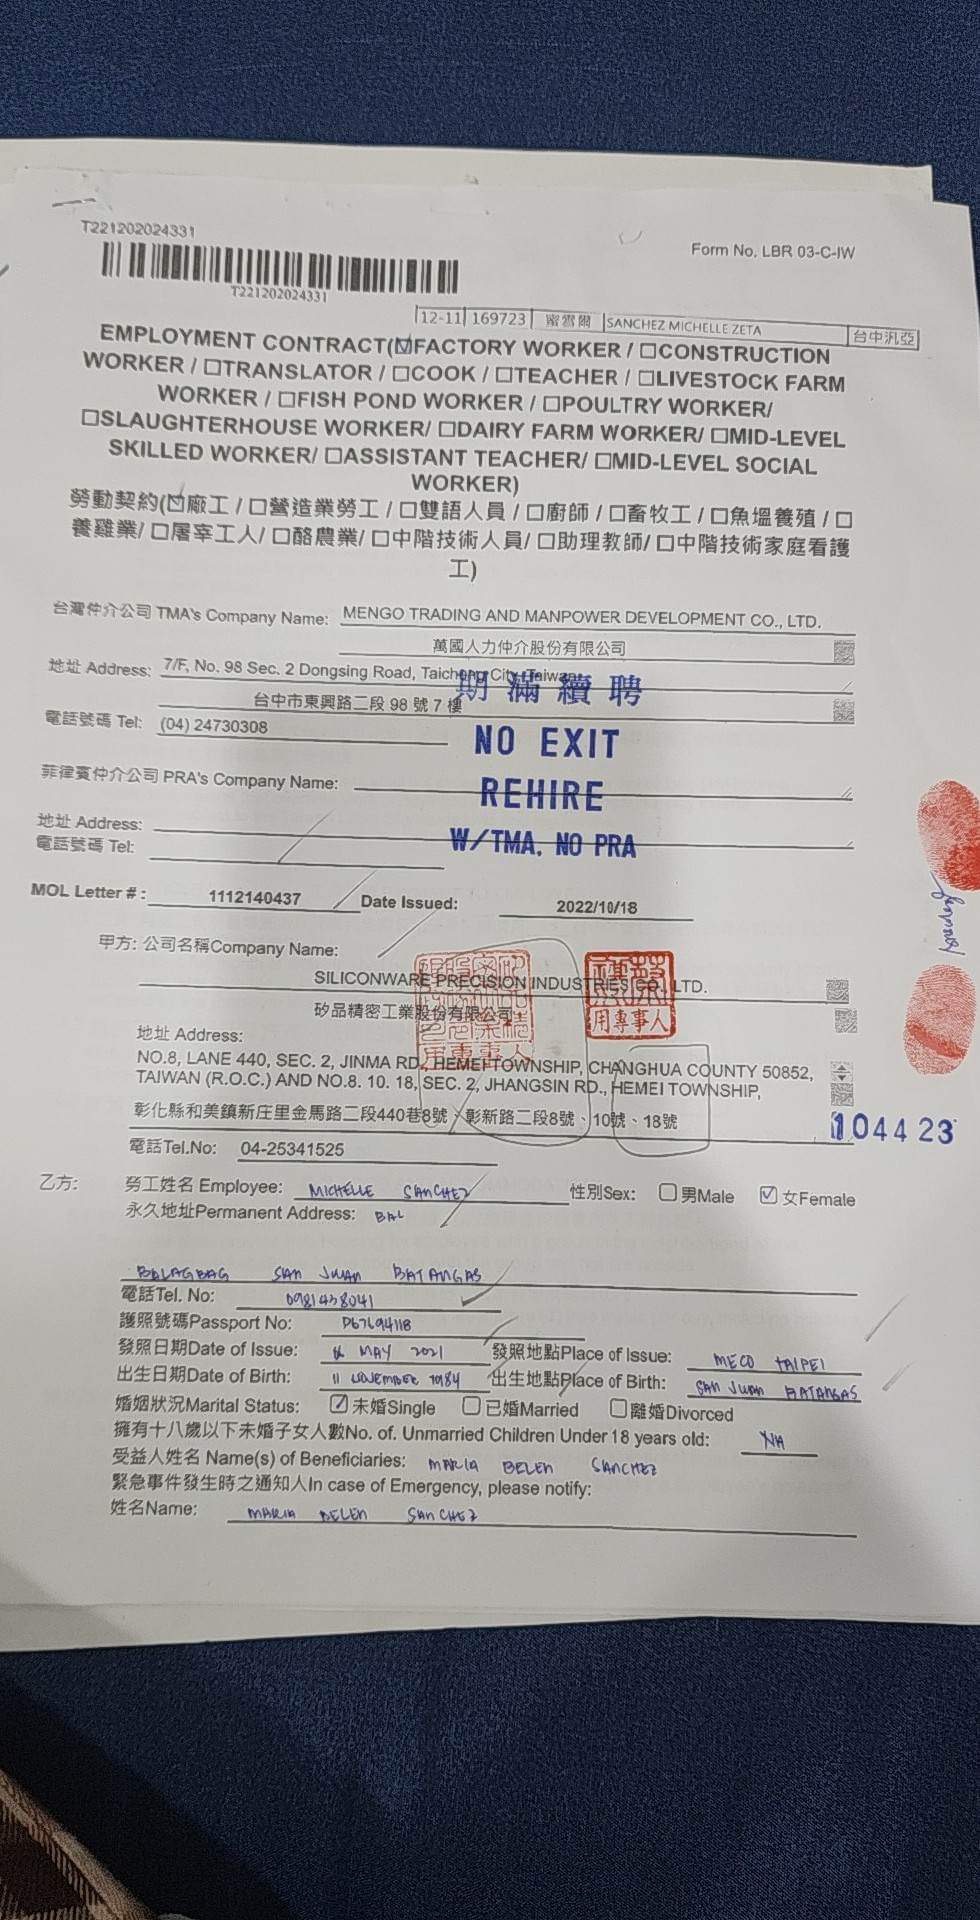 T221202024331
Form No. LBR 03-C-IW
T221202024331
12-11 169723 蜜雪爾 SANCHEZ MICHELLE ZETA 台中汎亞
EMPLOYMENT CONTRACT(☑FACTORY WORKER / □CONSTRUCTION
WORKER / □TRANSLATOR / □COOK / □TEACHER / □LIVESTOCK FARM
WORKER / □FISH POND WORKER / □POULTRY WORKER/
□SLAUGHTERHOUSE WORKER/ □DAIRY FARM WORKER/ □MID-LEVEL
SKILLED WORKER/ □ASSISTANT TEACHER/ □MID-LEVEL SOCIAL
WORKER)
勞動契約(☑廠工 / □營造業勞工 / □雙語人員 / □廚師 / □畜牧工 / □魚塭養殖 / □
養雞業/ □屠宰工人/ □酪農業/ □中階技術人員/ □助理教師/ □中階技術家庭看護
工)
台灣仲介公司 TMA's Company Name: MENGO TRADING AND MANPOWER DEVELOPMENT CO., LTD.
萬國人力仲介股份有限公司
地址 Address: 7/F, No. 98 Sec. 2 Dongsing Road, Taichung City, Taiwan
期滿續聘
台中市東興路二段 98 號 7 樓
電話號碼 Tel: (04) 24730308
NO EXIT
菲律賓仲介公司 PRA's Company Name:
REHIRE
地址 Address:
電話號碼 Tel:
W/TMA. NO PRA
MOL Letter # : 1112140437 Date Issued: 2022/10/18
甲方: 公司名稱Company Name:
SILICONWARE PRECISION INDUSTRIES CO., LTD.
矽品精密工業股份有限公司
用專事人
地址 Address:
NO.8, LANE 440, SEC. 2, JINMA RD., HEMEI TOWNSHIP, CHANGHUA COUNTY 50852,
TAIWAN (R.O.C.) AND NO.8. 10. 18, SEC. 2, JHANGSIN RD., HEMEI TOWNSHIP,
彰化縣和美鎮新庄里金馬路二段440巷8號、彰新路二段8號、10號、18號
104423
電話Tel.No: 04-25341525
乙方: 勞工姓名 Employee: MICHELLE SANCHEZ 性別Sex: □男Male ☑女Female
永久地址Permanent Address: BAL
BOLAGBAG SAN JUAN BATANGAS
電話Tel. No: 0981438041
護照號碼Passport No: P6769411B
發照日期Date of Issue: MAY 2021 發照地點Place of Issue: MECO TAIPEI
出生日期Date of Birth: 11 NOVEMBER 1984 出生地點Place of Birth: SAN JUAN BATANGAS
婚姻狀況Marital Status: ☑未婚Single □已婚Married □離婚Divorced
擁有十八歲以下未婚子女人數No. of. Unmarried Children Under 18 years old: NA
受益人姓名 Name(s) of Beneficiaries: MARIA BELEN SANCHEZ
緊急事件發生時之通知人In case of Emergency, please notify:
姓名Name: MARIA BELEN SANCHEZ